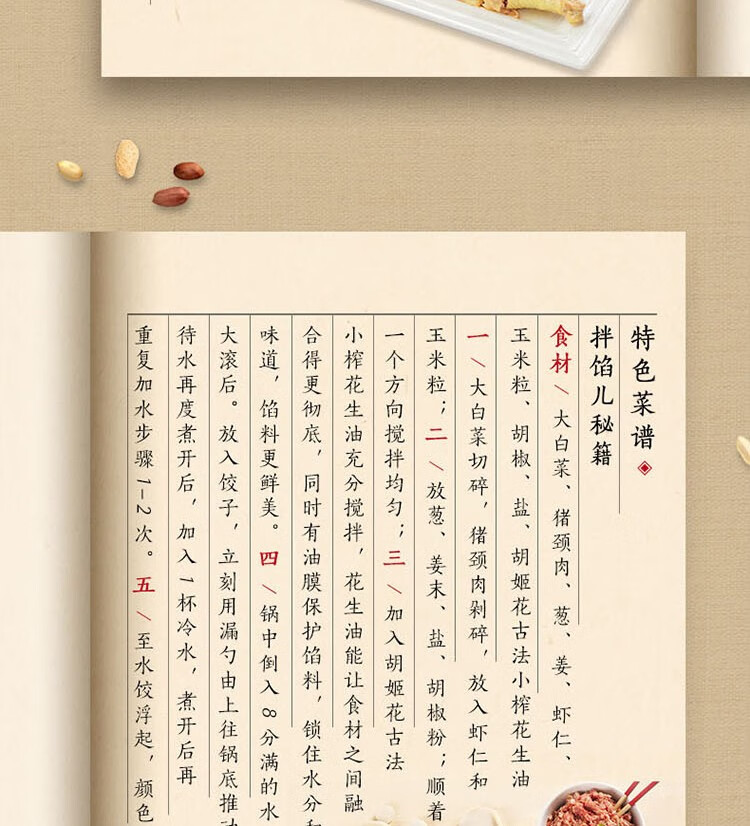 特色菜谱
拌馅儿秘籍
食材／大白菜、猪颈肉、葱、姜、虾仁、
玉米粒、胡椒、盐、胡姬花古法小榨花生油
一／大白菜切碎，猪颈肉剁碎，放入虾仁和
玉米粒；二／放葱、姜末、盐、胡椒粉；顺着
一个方向搅拌均匀；三／加入胡姬花古法
小榨花生油充分搅拌，花生油能让食材之间融
合得更彻底，同时有油膜保护馅料，锁住水分和
味道，馅料更鲜美。四／锅中倒入8分满的水
大滚后。放入饺子，立刻用漏勺由上往锅底推动
待水再度煮开后，加入1杯冷水，煮开后再
重复加水步骤1-2次。五／至水饺浮起，颜色